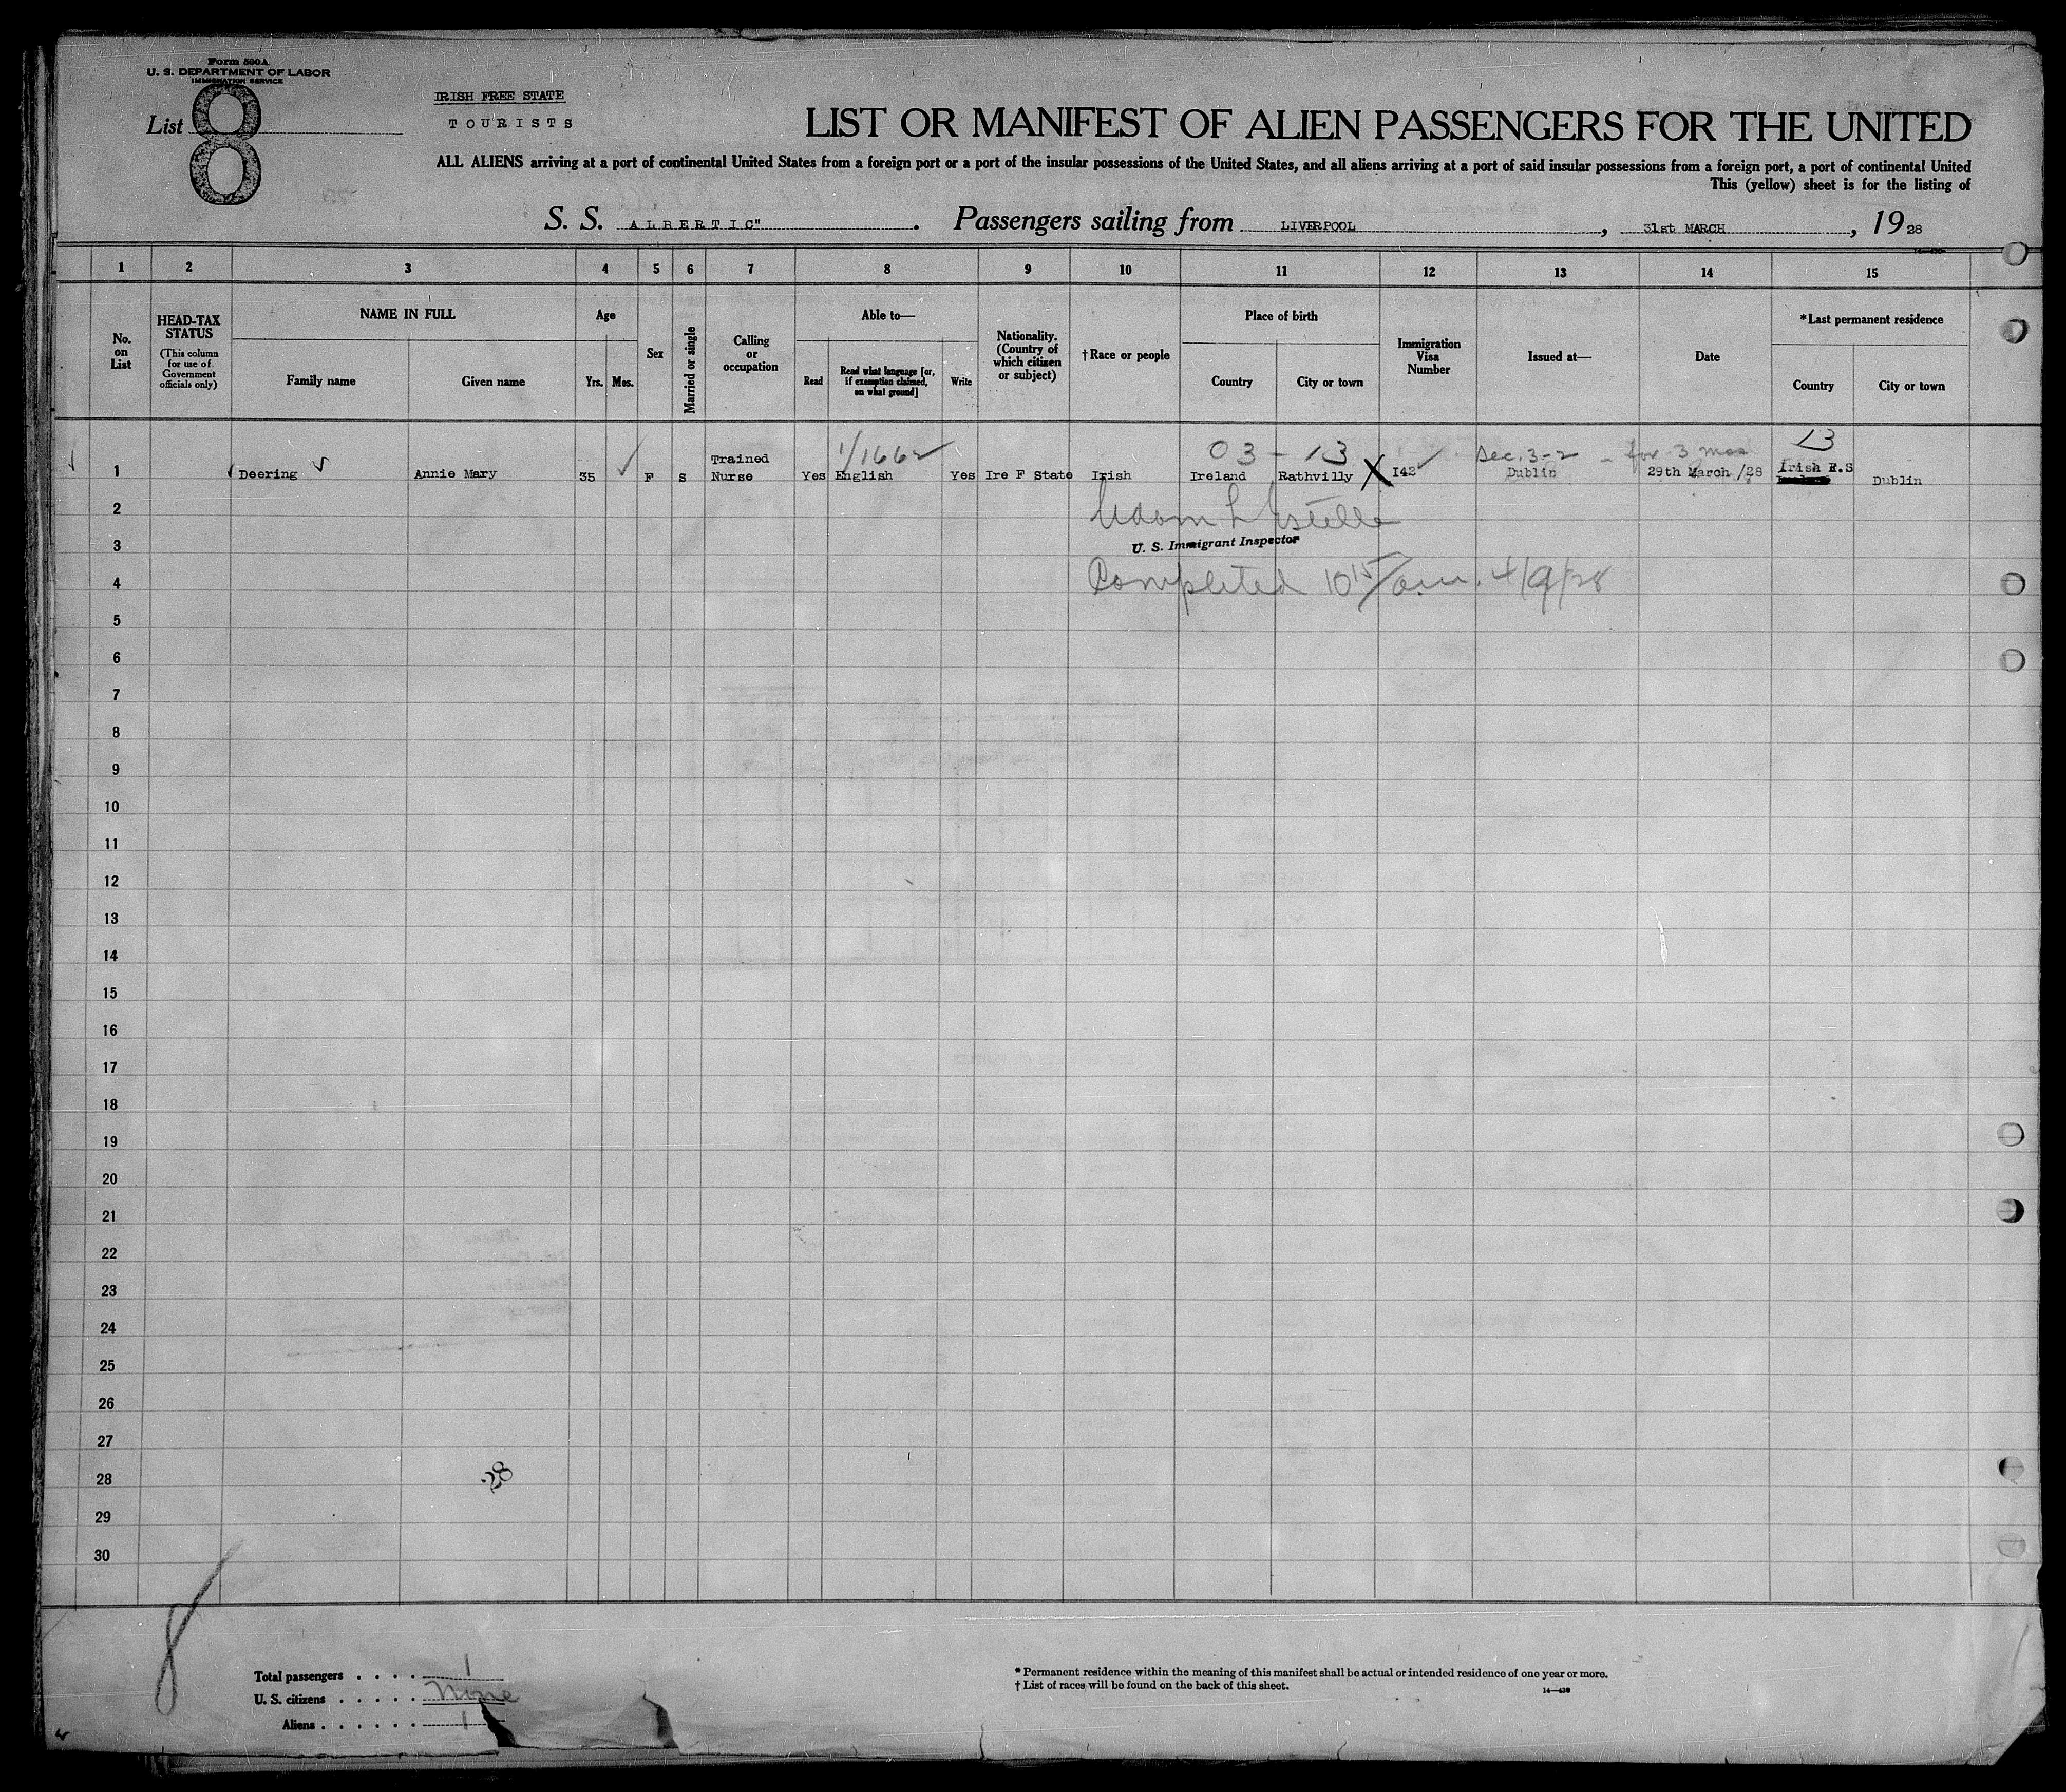 Form 500A
U. S. DEPARTMENT OF LABOR
IMMIGRATION SERVICE
List 8
IRISH FREE STATE
TOURISTS
LIST OR MANIFEST OF ALIEN PASSENGERS FOR THE UNITED
ALL ALIENS arriving at a port of continental United States from a foreign port or a port of the insular possessions of the United States, and all aliens arriving at a port of said insular possessions from a foreign port, a port of continental United
This (yellow) sheet is for the listing of
S. S. ALBERTIC". Passengers sailing from LIVERPOOL, 31st MARCH, 1928
1 2 3 4 5 6 7 8 9 10 11 12 13 14 15
No. on List
HEAD-TAX STATUS
(This column for use of Government officials only)
NAME IN FULL
Family name
Given name
Age
Yrs. Mos.
Sex
Married or single
Calling or occupation
Able to—
Read
Read what language [or, if exemption claimed, on what ground]
Write
Nationality. (Country of which citizen or subject)
†Race or people
Place of birth
Country
City or town
Immigration Visa Number
Issued at—
Date
*Last permanent residence
Country
City or town
1/1662 03-13 Sec. 3-2 - for 3 mos 13
1 Deering Annie Mary 35 F S Trained Nurse Yes English Yes Ire F State Irish Ireland Rathvilly X 142 Dublin 29th March /28 Irish F.S Dublin
2
U. S. Immigrant Inspector
3
4 Completed 10 15/a.m. 4/9/28
5
6
7
8
9
10
11
12
13
14
15
16
17
18
19
20
21
22
23
24
25
26
27
28 28
29
30
8
Total passengers . . . . 1
U. S. citizens . . . . . None
Aliens . . . . . . 1
* Permanent residence within the meaning of this manifest shall be actual or intended residence of one year or more.
† List of races will be found on the back of this sheet.